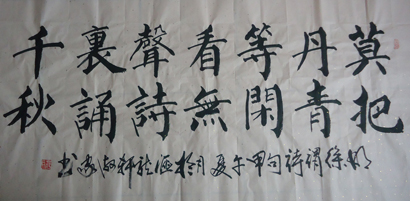 莫把
丹青
等閑
看無
聲詩
裏誦
千秋
明徐渭詩句甲午夏月於
書